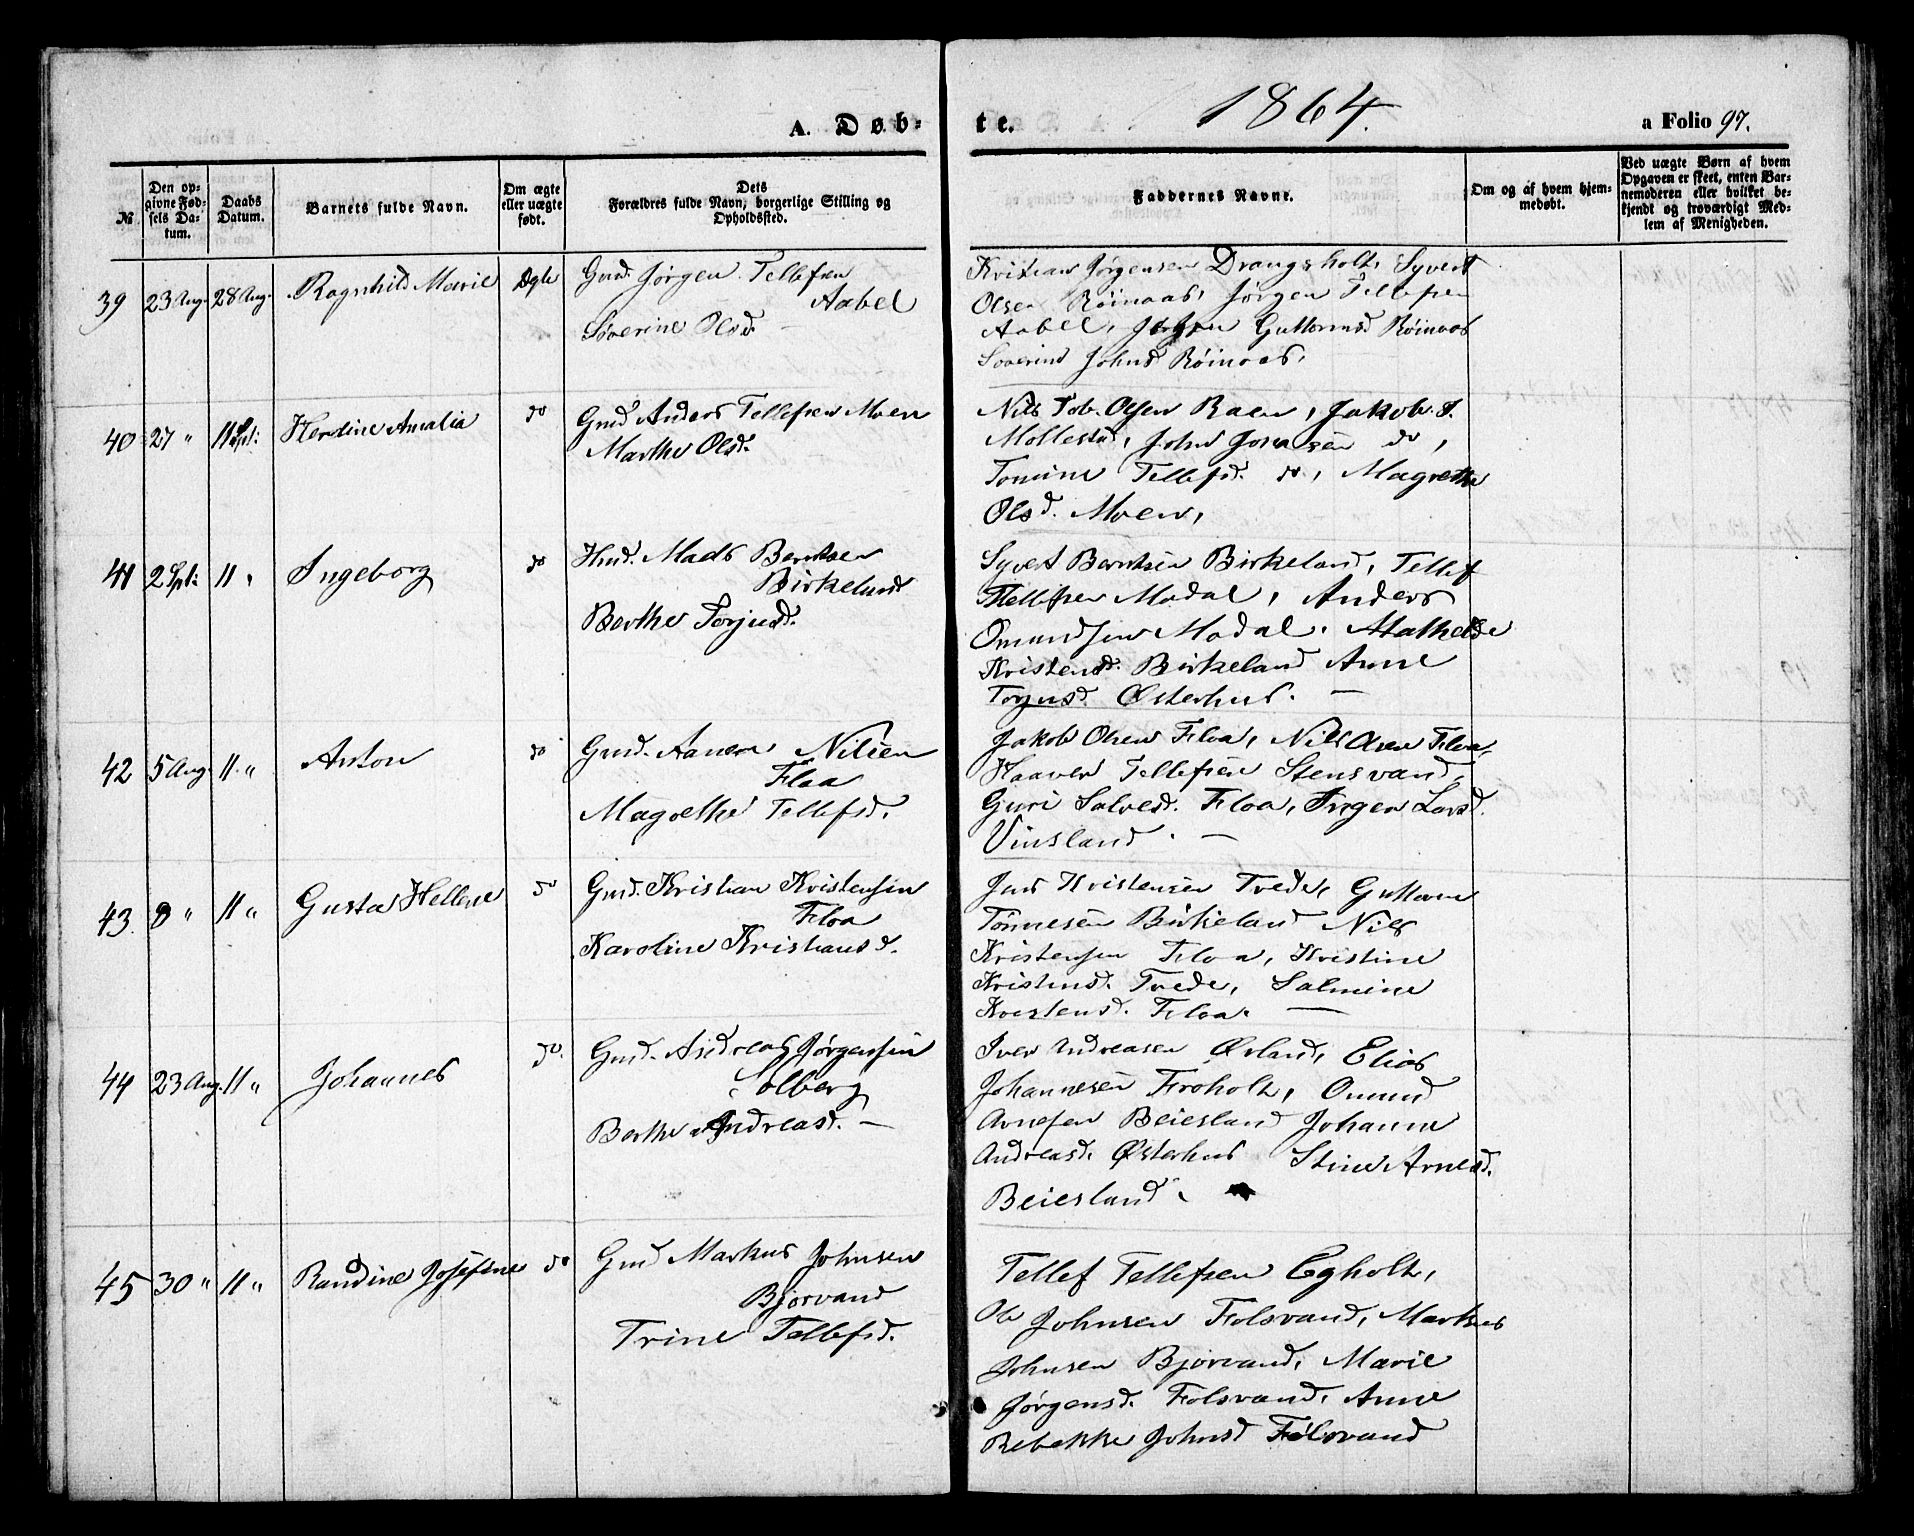 A. Døb-te. 1864. a Folio 97.
№
Den opgivne Fødsels Datum.
Daabs Datum.
Barnets fulde Navn.
Om ægte eller uægte født.
Dets Forældres fulde Navn, borgerlige Stilling og Opholdssted.
Faddernes Navne.
Om og af hvem hjemmedøbt.
Ved uægte Børn af hvem Opgaven er skeet, enten Barnemoderen eller hvilket bekjendt og troværdigt Medlem af Menigheden.
39 23 Aug. 28 Aug. Ragnhild Marie Ægte Gmd. Jørgen Tellefsen
Aabel
Severine Olsd. —
Kristian Jørgensen Drangsholt, Syvert
Olsen Røinaas, Jørgen Tellefsen
Aabel, Guttormsd Røinaas
Severine Johnsd Røinaas,
40 27 " 11 Spt: Herdine Amalia do Gmd Anders Tellefsen Moen
Marthe Olsd.
Nils Tob. Olsen Raen, Jakob S.
Mollestad, John Jonassen do,
Tomine Tellefsd. do, Magrethe
Olsd. Moen,
41 2 Spt: 11 " Ingeborg do Hmd. Mads Berntsen
Birkeland
Berthe Torjusd.
Syvert Berntsen Birkeland, Tellef
Tellefsen Modal, Anders
Omundsen Modal. Mathelde
Kristensd. Birkeland Anne
Torjusd. Østerhus. —
42 5 Aug 11 " Anton do Gmd. Aanen Nilsen
Floa
Magrethe Tellefsd.
Jakob Olsen Floa, Nils Olsen Floa,
Haaver Tellefsen Stensvand,
Guri Salvesd. Floa, Inger Larsd.
Vinsland. —
43 8 " 11 " Gusta Hellene do Gmd. Kristian Kristensen
Floa
Karoline Kristiansd.
Jens Kristensen Tvede, Guttorm
Tønnesen Birkeland Nils
Kristensen Floa, Kristine
Kristensd. Tvede, Salmine
Kristensd. Floa. —
44 23 Aug. 11 " Johannes do. Gmd. Andreas Jørgensen
Solberg
Berthe Andreasd. —
Iver Andreasen Ørland, Elias
Johannesen Froholt, Omund
Arnesen Beiesland Johanne
Andreasd. Østerhus Stine Arnesd.
Beiesland.
45 30 " 11 " Randine Josefine do Gmd Markus Johnsen
Bjorvand
Trine Tellefsd.
Tellef Tellefsen Egholt,
Ole Johnsen Folsvand, Markus
Johnsen Bjorvand, Marie
Jørgensd. Folsvand, Anne
Rebekke Johnsd Folsvand